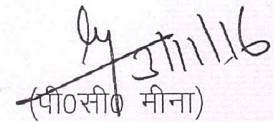 3/11/16
(पी०सी० मीना)